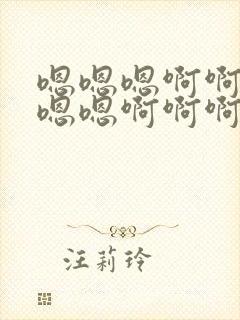 嗯嗯嗯啊啊
嗯嗯啊啊啊
汪莉玲